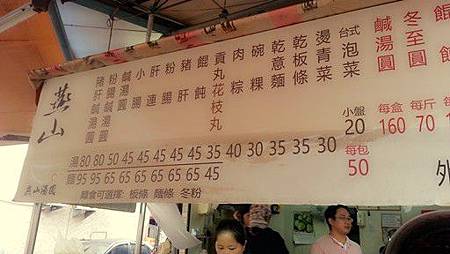 燕山
燕山湯圓
豬肝鹹湯圓
粉腸鹹湯圓
鹹湯圓
小腸
肝連
粉腸
豬肝
餛飩
貢丸花枝丸
肉粽
碗粿
乾意麵
乾板條
燙青菜
台式泡菜
鹹湯圓
冬至圓
湯 80 80 50 45 45 45 45 45 35 40 30 35 35 30
麵 95 95 65 65 65 65 65 65 45
麵食可選擇: 板條 麵條 冬粉
小盤 20
每包 50
每盒 160
每斤 70
外